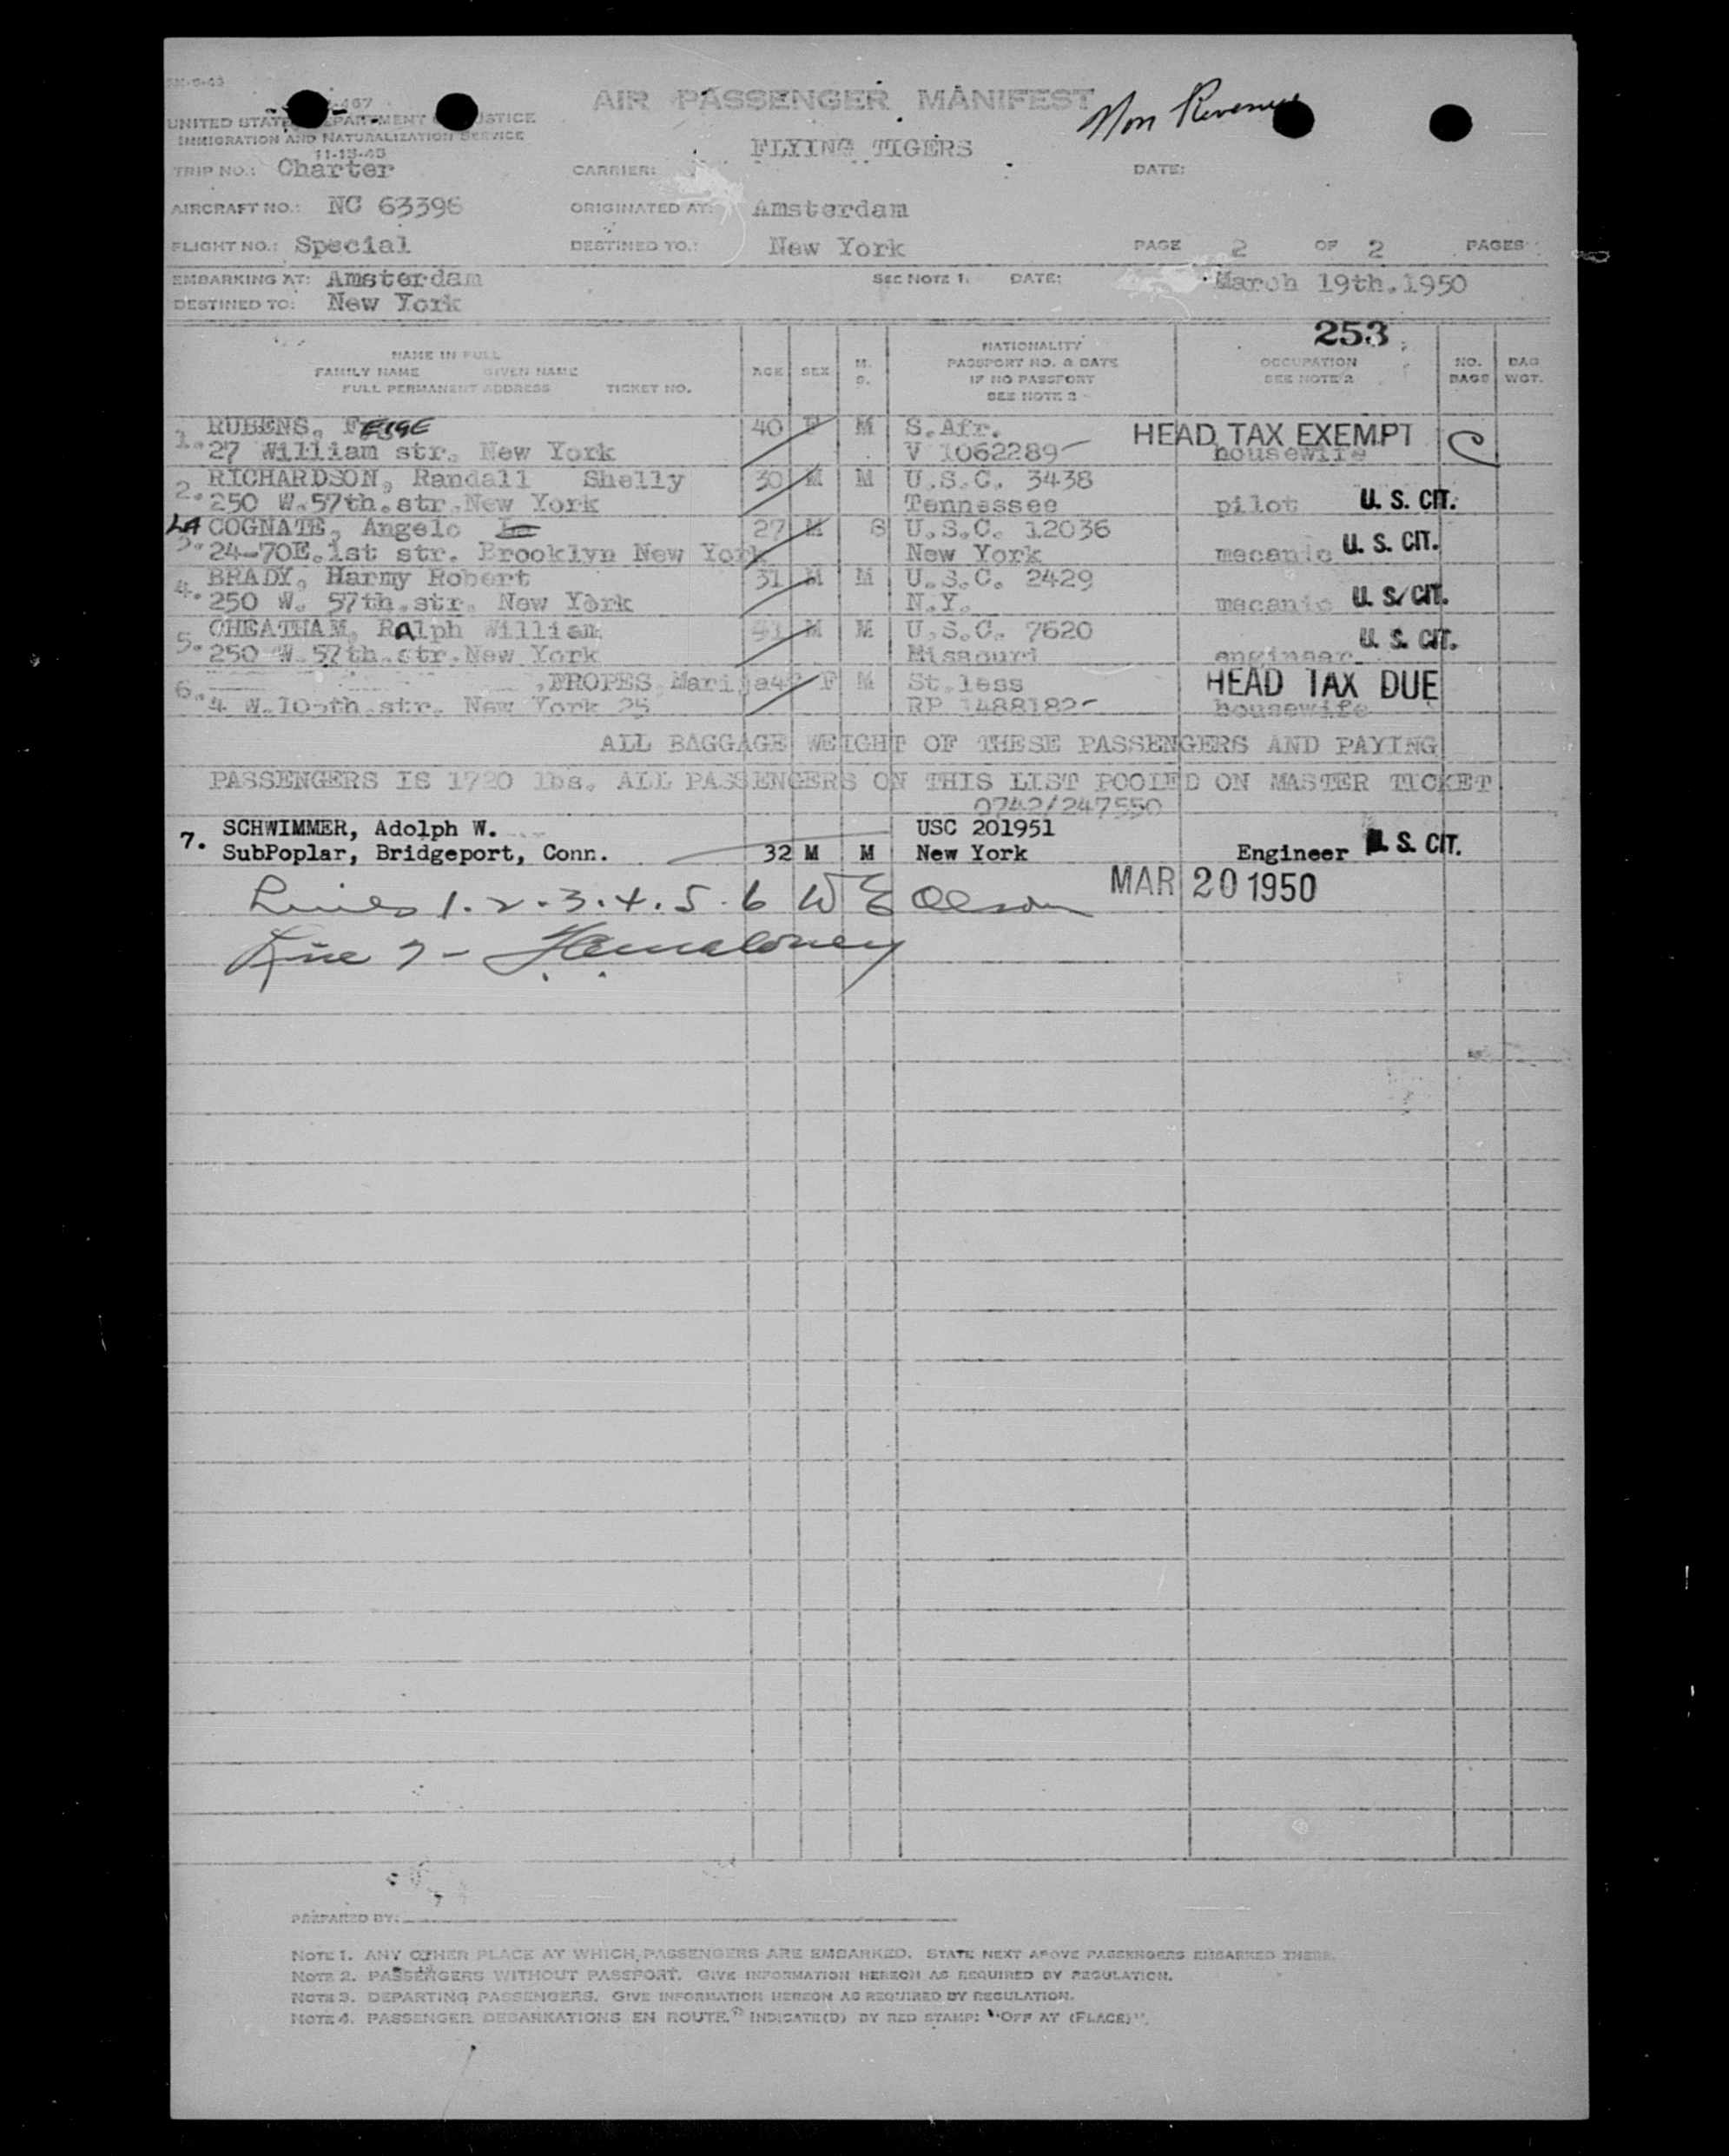 AIR PASSENGER MANIFEST
Non Revenue
UNITED STATES DEPARTMENT OF JUSTICE
IMMIGRATION AND NATURALIZATION SERVICE
11-15-45
FLYING TIGERS
TRIP NO.: Charter CARRIER: DATE:
AIRCRAFT NO.: NC 63396 ORIGINATED AT: Amsterdam
FLIGHT NO.: Special DESTINED TO.: New York PAGE 2 OF 2 PAGES
EMBARKING AT: Amsterdam SEE NOTE 1. DATE: March 19th.1950
DESTINED TO: New York
253
NAME IN FULL
FAMILY NAME GIVEN NAME
FULL PERMANENT ADDRESS TICKET NO.
AGE SEX M. S.
NATIONALITY
PASSPORT NO. & DATE
IF NO PASSPORT
SEE NOTE 2
OCCUPATION
SEE NOTE 2
NO. BAGS
BAG WGT.
1. RUBENS, 40 F M S.Afr. HEAD TAX EXEMPT
27 William str. New York V 1062289 housewife
2. RICHARDSON, Randall Shelly 30 M M U.S.C. 3438
250 W.57th.str.New York Tennessee pilot U. S. CIT.
3. LA COGNATE, Angelo 27 M S U.S.C. 12036
24-70E.1st str. Brooklyn New York New York mecanic U. S. CIT.
4. BRADY, Harmy Robert 31 M M U.S.C. 2429
250 W. 57th.str. New York N.Y. mecanic U. S. CIT.
5. CHEATHAM, Ralph William M M U.S.C. 7620 U. S. CIT.
250 W.57th.str.New York Missouri engineer
6. PROPES Marija F M St.less HEAD TAX DUE
str. New York 25 RP 1488182 housewife
ALL BAGGAGE WEIGHT OF THESE PASSENGERS AND PAYING
PASSENGERS IS 1720 lbs. ALL PASSENGERS ON THIS LIST POOLED ON MASTER TICKET
0742/247550
7. SCHWIMMER, Adolph W. USC 201951
SubPoplar, Bridgeport, Conn. 32 M M New York Engineer U. S. CIT.
Lines 1.2.3.4.5.6 W E Olson MAR 20 1950
Line 7 -
PREPARED BY:
NOTE 1. ANY OTHER PLACE AT WHICH PASSENGERS ARE EMBARKED. STATE NEXT ABOVE PASSENGERS EMBARKED THERE.
NOTE 2. PASSENGERS WITHOUT PASSPORT. GIVE INFORMATION HEREON AS REQUIRED BY REGULATION.
NOTE 3. DEPARTING PASSENGERS. GIVE INFORMATION HEREON AS REQUIRED BY REGULATION.
NOTE 4. PASSENGER DEBARKATIONS EN ROUTE. INDICATE(D) BY RED STAMP: "OFF AT (PLACE)".